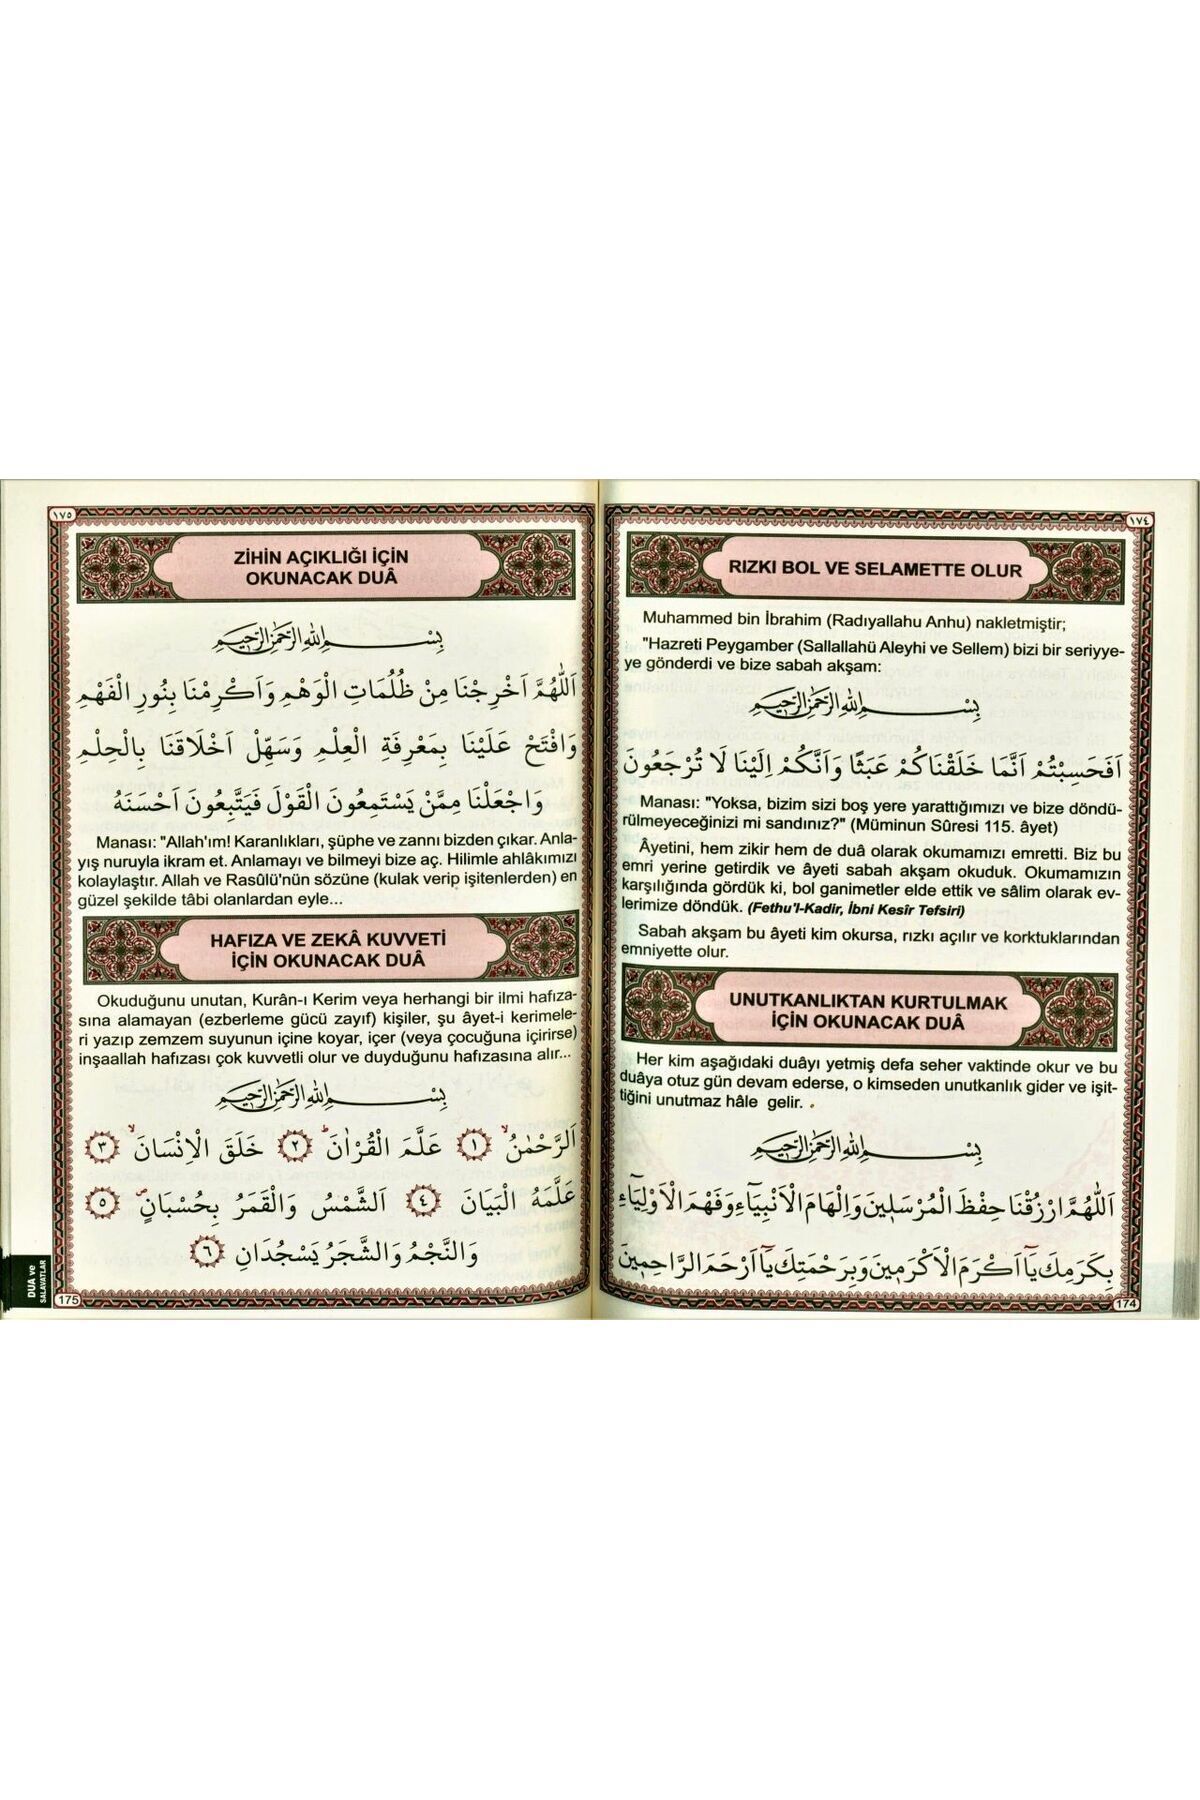 ١٧٤
RIZKI BOL VE SELAMETTE OLUR
Muhammed bin İbrahim (Radıyallahu Anhu) nakletmiştir;
"Hazreti Peygamber (Sallallahü Aleyhi ve Sellem) bizi bir seriyye-
ye gönderdi ve bize sabah akşam:
بِسْمِ اللهِ الرَّحْمٰنِ الرَّحِيمِ
اَفَحَسِبْتُمْ اَنَّمَا خَلَقْنَاكُمْ عَبَثًا وَاَنَّكُمْ اِلَيْنَا لَا تُرْجَعُونَ
Manası: "Yoksa, bizim sizi boş yere yarattığımızı ve bize döndü-
rülmeyeceğinizi mi sandınız?" (Müminun Sûresi 115. âyet)
Âyetini, hem zikir hem de duâ olarak okumamızı emretti. Biz bu
emri yerine getirdik ve âyeti sabah akşam okuduk. Okumamızın
karşılığında gördük ki, bol ganimetler elde ettik ve sâlim olarak ev-
lerimize döndük. (Fethu'l-Kadir, İbni Kesîr Tefsiri)
Sabah akşam bu âyeti kim okursa, rızkı açılır ve korktuklarından
emniyette olur.
UNUTKANLIKTAN KURTULMAK
İÇİN OKUNACAK DUÂ
Her kim aşağıdaki duâyı yetmiş defa seher vaktinde okur ve bu
duâya otuz gün devam ederse, o kimseden unutkanlık gider ve işit-
tiğini unutmaz hâle gelir.
بِسْمِ اللهِ الرَّحْمٰنِ الرَّحِيمِ
اَللّٰهُمَّ ارْزُقْنَا حِفْظَ الْمُرْسَلِينَ وَاِلْهَامَ الْاَنْبِيَآءِ وَفَهْمَ الْاَوْلِيَآءِ
بِكَرَمِكَ يَآ اَكْرَمَ الْاَكْرَمِينَ وَبِرَحْمَتِكَ يَآ اَرْحَمَ الرَّاحِمِينَ
174
١٧٥
ZİHİN AÇIKLIĞI İÇİN
OKUNACAK DUÂ
بِسْمِ اللهِ الرَّحْمٰنِ الرَّحِيمِ
اَللّٰهُمَّ اَخْرِجْنَا مِنْ ظُلُمَاتِ الْوَهْمِ وَاَكْرِمْنَا بِنُورِ الْفَهْمِ
وَافْتَحْ عَلَيْنَا بِمَعْرِفَةِ الْعِلْمِ وَسَهِّلْ اَخْلَاقَنَا بِالْحِلْمِ
وَاجْعَلْنَا مِمَّنْ يَسْتَمِعُونَ الْقَوْلَ فَيَتَّبِعُونَ اَحْسَنَهُ
Manası: "Allah'ım! Karanlıkları, şüphe ve zannı bizden çıkar. Anla-
yış nuruyla ikram et. Anlamayı ve bilmeyi bize aç. Hilimle ahlâkımızı
kolaylaştır. Allah ve Rasûlü'nün sözüne (kulak verip işitenlerden) en
güzel şekilde tâbi olanlardan eyle...
HAFIZA VE ZEKÂ KUVVETİ
İÇİN OKUNACAK DUÂ
Okuduğunu unutan, Kurân-ı Kerim veya herhangi bir ilmi hafıza-
sına alamayan (ezberleme gücü zayıf) kişiler, şu âyet-i kerimele-
ri yazıp zemzem suyunun içine koyar, içer (veya çocuğuna içirirse)
inşaallah hafızası çok kuvvetli olur ve duyduğunu hafızasına alır...
بِسْمِ اللهِ الرَّحْمٰنِ الرَّحِيمِ
اَلرَّحْمٰنُۙ ﴿١﴾ عَلَّمَ الْقُرْاٰنَۜ ﴿٢﴾ خَلَقَ الْاِنْسَانَۙ ﴿٣﴾
عَلَّمَهُ الْبَيَانَ ﴿٤﴾ اَلشَّمْسُ وَالْقَمَرُ بِحُسْبَانٍۖ ﴿٥﴾
وَالنَّجْمُ وَالشَّجَرُ يَسْجُدَانِ ﴿٦﴾
DUA ve
SALAVATLAR
175